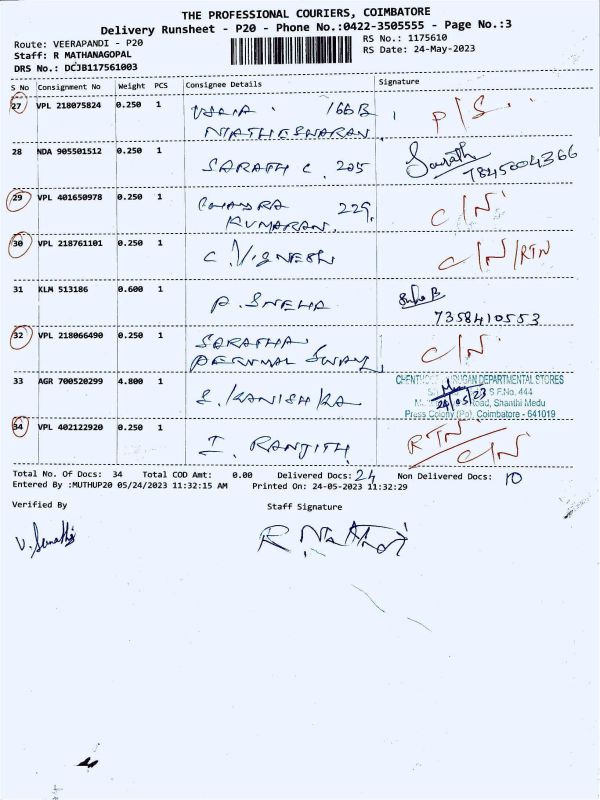 THE PROFESSIONAL COURIERS, COIMBATORE
Delivery Runsheet - P20 - Phone No.:0422-3505555 - Page No.:3
Route: VEERAPANDI - P20 RS No.: 1175610
Staff: R MATHANAGOPAL RS Date: 24-May-2023
DRS No.: DCJB117561003
S No Consignment No Weight PCS Consignee Details Signature
27 VPL 218075824 0.250 1 166B P/S.
28 NDA 905501512 0.250 1 SARATH C. 205 Sarath 7845004366
29 VPL 401650978 0.250 1 CHANDRA 229. C/N
KUMARAN.
30 VPL 218761101 0.250 1 C. VIGNESH C/N/RTN
31 KLM 513186 0.600 1 P. SNEHA 7358410553
32 VPL 218066490 0.250 1 C/N.
PERUMAL SWAMY
33 AGR 700520299 4.800 1 S. KANISHKA DEPARTMENTAL STORES
S.F.No, 444
24/05/23 Road, Shanthi Medu
Press Colony (Po), Coimbatore - 641019
34 VPL 402122920 0.250 1 I. RANJITH. RTN C/N
Total No. Of Docs: 34 Total COD Amt: 0.00 Delivered Docs: 24 Non Delivered Docs: 10
Entered By :MUTHUP20 05/24/2023 11:32:15 AM Printed On: 24-05-2023 11:32:29
Verified By Staff Signature